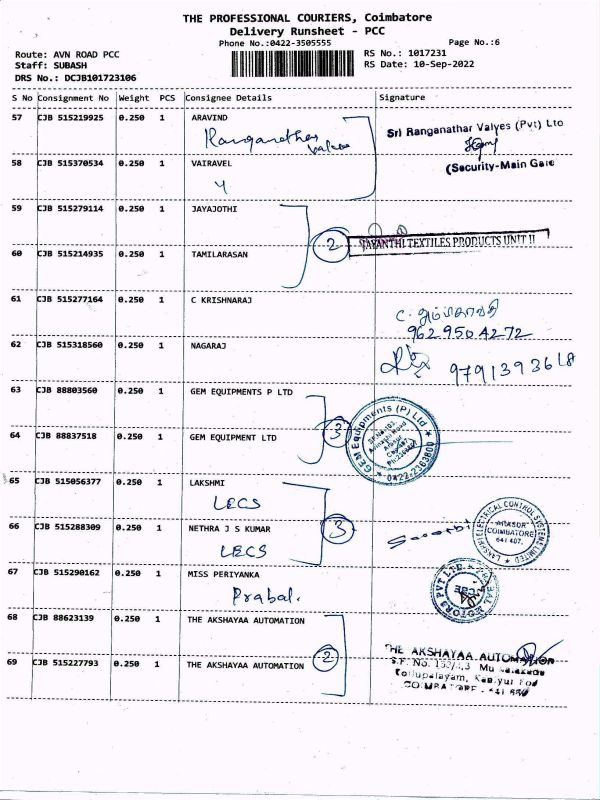 THE PROFESSIONAL COURIERS, Coimbatore
Delivery Runsheet - PCC
Phone No.:0422-3505555
Page No.:6
Route: AVN ROAD PCC
RS No.: 1017231
Staff: SUBASH
RS Date: 10-Sep-2022
DRS No.: DCJB101723106
S No Consignment No Weight PCS Consignee Details Signature
57 CJB 515219925 0.250 1 ARAVIND
Ranganathar Valves
Sri Ranganathar Valves (Pvt) Ltd
58 CJB 515370534 0.250 1 VAIRAVEL
(Security-Main Gate
59 CJB 515279114 0.250 1 JAYAJOTHI
2 JAYANTHI TEXTILES PRODUCTS UNIT II
60 CJB 515214935 0.250 1 TAMILARASAN
61 CJB 515277164 0.250 1 C KRISHNARAJ
9629504272
62 CJB 515318560 0.250 1 NAGARAJ
9791393618
63 CJB 88803560 0.250 1 GEM EQUIPMENTS P LTD
3 GEM Equipments (P) Ltd
64 CJB 88837518 0.250 1 GEM EQUIPMENT LTD
65 CJB 515056377 0.250 1 LAKSHMI
LECS
3
66 CJB 515288309 0.250 1 NETHRA J S KUMAR
LECS
ELECTRICAL CONTROL SYSTEMS LIMITED
ARASUR
COIMBATORE
641 407.
67 CJB 515290162 0.250 1 MISS PERIYANKA
Prabal.
68 CJB 88623139 0.250 1 THE AKSHAYAA AUTOMATION
2
69 CJB 515227793 0.250 1 THE AKSHAYAA AUTOMATION
THE AKSHAYAA AUTOMATION
S.F. No.
COIMBATORE